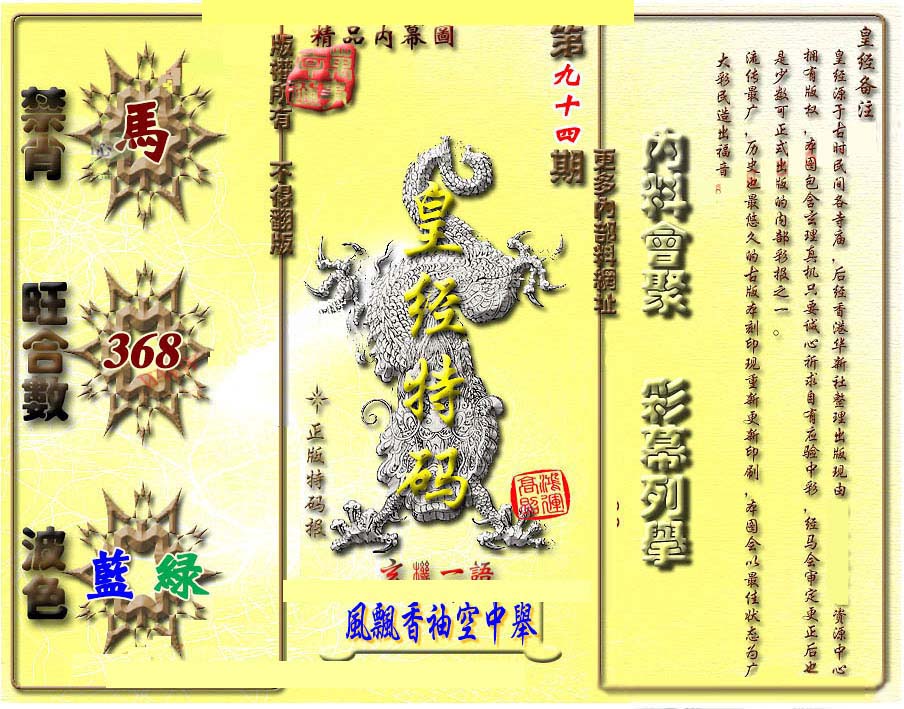 皇经备注
皇经源于古时民间各寺庙,后经香港华新社整理出版现由 资源中心
拥有版权,本图包含玄理真机只要诚心祈求自有应验中彩,经马会审定更正后也
是少数可正式出版的内部彩报之一。
流传最广,历史也最悠久的古版本刻印现重新更新印刷,本图会以最佳状态为广
大彩民造出福音
内料會聚
彩幕列舉
更多內部料網址
第九十四期
精品内幕圖
皇经特码
正版特码报
鴻運高照
玄機一語
風飄香袖空中舉
版權所有 不得翻版
禁肖
馬
旺合數
368
波色
藍 緑